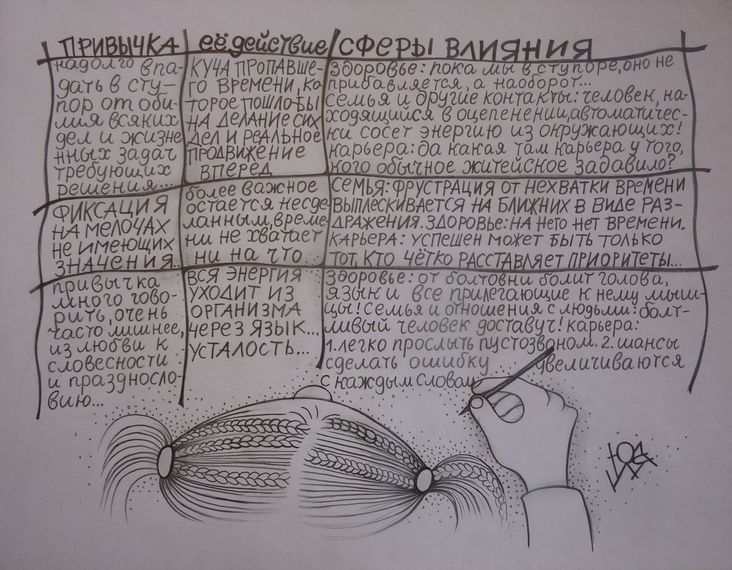 ПРИВЫЧКА
её действие
СФЕРЫ ВЛИЯНИЯ
надолго впа-
дать в сту-
пор от оби-
лия всяких
дел и жизне
нных задач
требующих
решения...
КУЧА ПРОПАВШЕ-
ГО ВРЕМЕНИ, КО-
ТОРОЕ ПОШЛО БЫ
НА ДЕЛАНИЕ СИХ
ДЕЛ И РЕАЛЬНОЕ
ПРОДВИЖЕНИЕ
ВПЕРЕД
Здоровье: пока мы в ступоре, оно не
прибавляется, а наоборот...
семья и другие контакты: человек, на-
ходящийся в оцепенении, автоматичес-
ки сосет энергию из окружающих!
карьера: да какая там карьера у того,
кого обычное житейское задавило?
ФИКСАЦИЯ
НА МЕЛОЧАХ
НЕ ИМЕЮЩИХ
ЗНАЧЕНИЯ...
более важное
остается несде-
ланным, време-
ни не хватает
ни на что...
СЕМЬЯ: ФРУСТРАЦИЯ ОТ НЕХВАТКИ ВРЕМЕНИ
ВЫПЛЕСКИВАЕТСЯ НА БЛИЖНИХ В ВИДЕ РАЗ-
ДРАЖЕНИЯ. ЗДОРОВЬЕ: НА НЕГО НЕТ ВРЕМЕНИ.
КАРЬЕРА: УСПЕШЕН МОЖЕТ БЫТЬ ТОЛЬКО
ТОТ, КТО ЧЁТКО РАССТАВЛЯЕТ ПРИОРИТЕТЫ...
привычка
много гово-
рить, очень
часто лишнее,
из любви к
словесности
и празднosло-
вию...
ВСЯ ЭНЕРГИЯ
УХОДИТ ИЗ
ОРГАНИЗМА
ЧЕРЕЗ ЯЗЫК...
УСТАЛОСТЬ...
Здоровье: от болтовни болит голова,
язык и все прилегающие к нему мыш-
цы! Семья и отношения с людьми: болт-
ливый человек достаучт! карьера:
1. легко прослыть пустозвоном. 2. шансы
сделать ошибку увеличиваются
с каждым словом